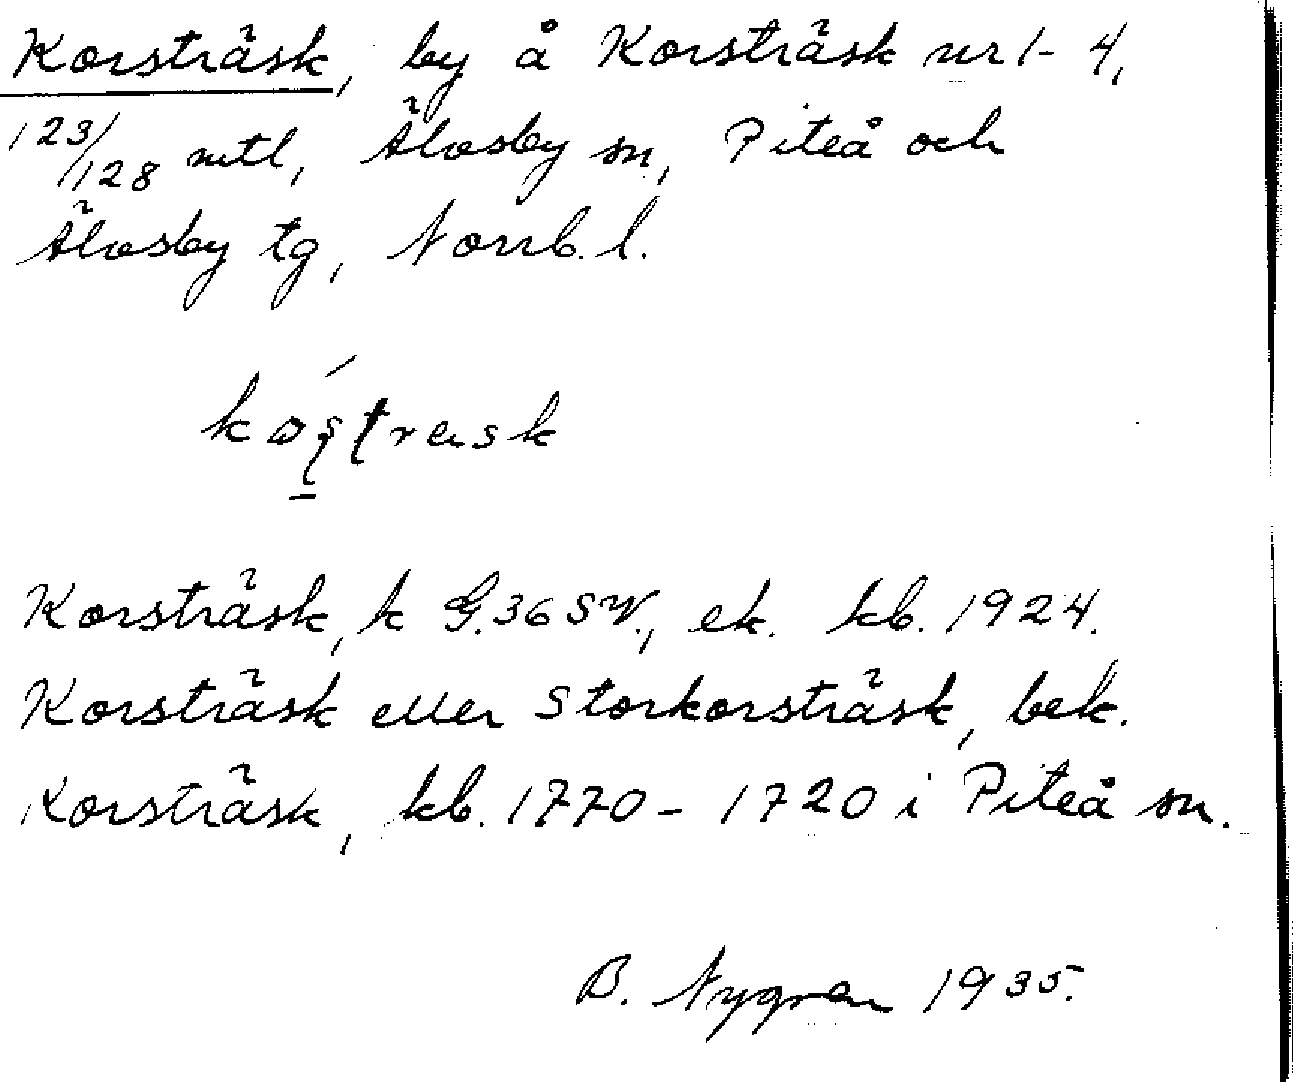 Korsträsk, by å Korsträsk nr 1-4,
123/128 mtl, Älvsby sn, Piteå och
Älvsby tg, Norrb. l.
Korsträsk, k G.36 SV., ek. kb. 1924.
Korsträsk eller Storkorsträsk, bek.
Korsträsk, kb. 1770-1720 i Piteå sn.
B. Nygren 1935.